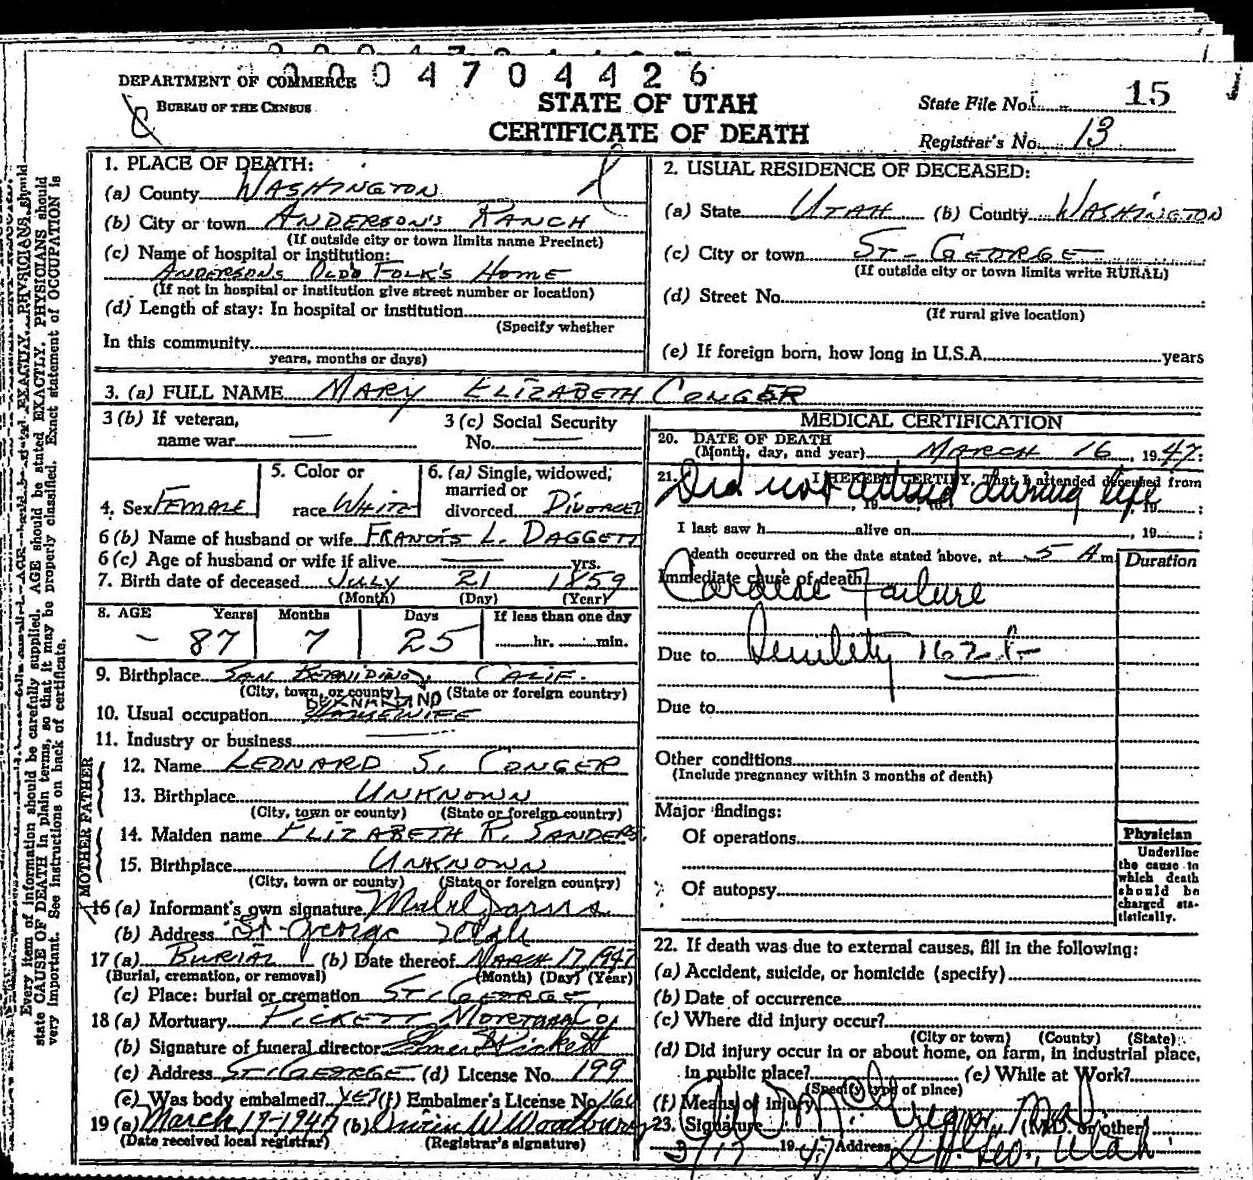 0004704426
DEPARTMENT OF COMMERCE
BUREAU OF THE CENSUS
STATE OF UTAH
CERTIFICATE OF DEATH
State File No. 15
Registrar's No. 13
1. PLACE OF DEATH:
(a) County WASHINGTON
(b) City or town ANDERSON'S RANCH
(If outside city or town limits name Precinct)
(c) Name of hospital or institution:
ANDERSONS OLD FOLK'S HOME
(If not in hospital or institution give street number or location)
(d) Length of stay: In hospital or institution
(Specify whether
In this community
years, months or days)
2. USUAL RESIDENCE OF DECEASED:
(a) State UTAH (b) County WASHINGTON
(c) City or town ST. GEORGE
(If outside city or town limits write RURAL)
(d) Street No.
(If rural give location)
(e) If foreign born, how long in U.S.A. years
3. (a) FULL NAME MARY ELIZABETH CONGER
3 (b) If veteran, name war —
3 (c) Social Security No. —
4. Sex FEMALE
5. Color or race WHITE
6. (a) Single, widowed, married or divorced DIVORCED
6 (b) Name of husband or wife FRANCIS L. DAGGETT
6 (c) Age of husband or wife if alive — yrs.
7. Birth date of deceased JULY 21 1859
(Month) (Day) (Year)
8. AGE Years Months Days If less than one day
– 87 7 25 hr. min.
9. Birthplace SAN BERNIDINO, CALIF.
(City, town, or county) (State or foreign country)
BERNARDINO
10. Usual occupation HOMEWIFE
11. Industry or business
FATHER
12. Name LEONARD S. CONGER
13. Birthplace UNKNOWN
(City, town or county) (State or foreign country)
MOTHER
14. Maiden name ELIZABETH R. SANDERS
15. Birthplace UNKNOWN
(City, town or county) (State or foreign country)
16 (a) Informant's own signature Mabel
(b) Address St. George Utah
17 (a) BURIAL (b) Date thereof MARCH 17 1947
(Burial, cremation, or removal) (Month) (Day) (Year)
(c) Place: burial or cremation ST. GEORGE
18 (a) Mortuary PICKETT MORTUARY
(b) Signature of funeral director Pickett
(c) Address ST. GEORGE (d) License No. 199
(e) Was body embalmed? YES (f) Embalmer's License No. 160
19 (a) March 19-1947 (b) W Woodbury
(Date received local registrar) (Registrar's signature)
MEDICAL CERTIFICATION
20. DATE OF DEATH
(Month, day, and year) MARCH 16, 1947
21. I HEREBY CERTIFY, That I attended deceased from
Did not attend during life
, 19 , to , 19 ;
I last saw h alive on , 19 ;
death occurred on the date stated above, at 5 A m
Duration
Immediate cause of death
Cardiac Failure
Due to 162
Due to
Other conditions
(Include pregnancy within 3 months of death)
Major findings:
Of operations
Of autopsy
Physician
Underline
the cause to
which death
should be
charged sta-
tistically.
22. If death was due to external causes, fill in the following:
(a) Accident, suicide, or homicide (specify)
(b) Date of occurrence
(c) Where did injury occur?
(City or town) (County) (State)
(d) Did injury occur in or about home, on farm, in industrial place,
in public place? (e) While at Work?
(Specify type of place)
(f) Means of injury
23. Signature M.D. (M.D. or other)
3/17 1947 Address St. Geo., Utah
Every item of information should be carefully supplied. AGE should be stated EXACTLY. PHYSICIANS should
state CAUSE OF DEATH in plain terms, so that it may be properly classified. Exact statement of OCCUPATION is
very important. See instructions on back of certificate.